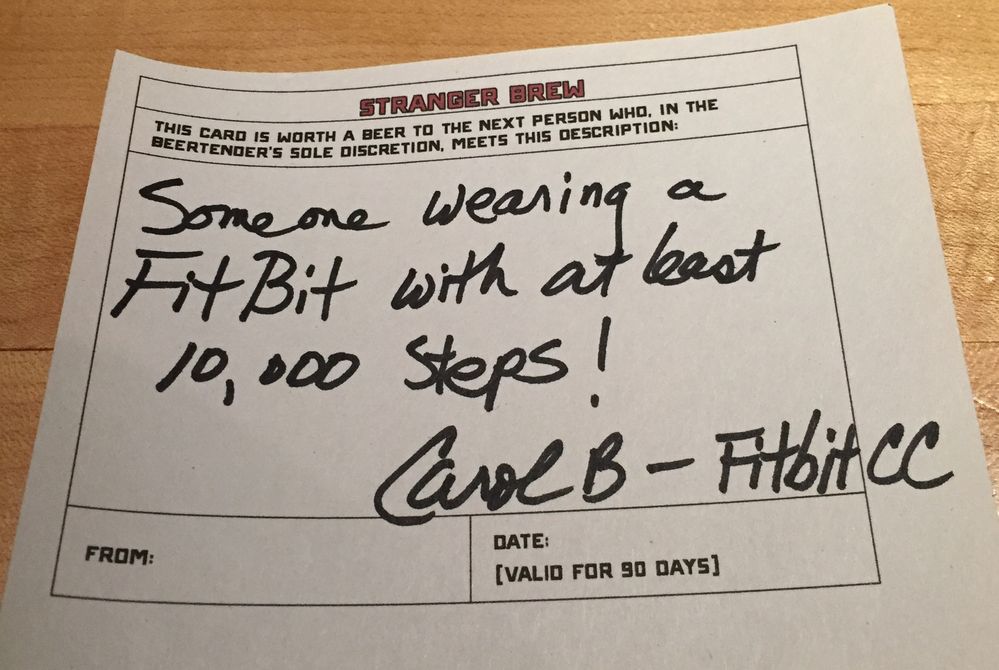 STRANGER BREW
THIS CARD IS WORTH A BEER TO THE NEXT PERSON WHO, IN THE
BEERTENDER'S SOLE DISCRETION, MEETS THIS DESCRIPTION:
Someone wearing a
FitBit with at least
10,000 steps!
Carol B - Fitbit CC
FROM:
DATE:
[VALID FOR 90 DAYS]